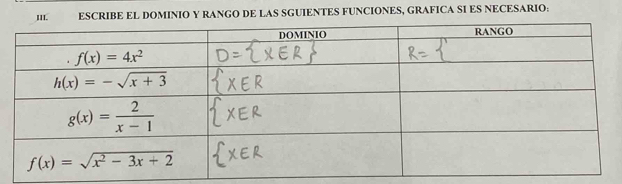 III. ESCRIBE EL DOMINIO Y RANGO DE LAS SGUIENTES FUNCIONES, GRAFICA SI ES NECESARIO:
DOMINIO RANGO
. f(x) = 4x² D={XER} R={
h(x) = − √x + 3 {XER
g(x) = 2/(x − 1) {XER
f(x) = √x² − 3x + 2 {XER